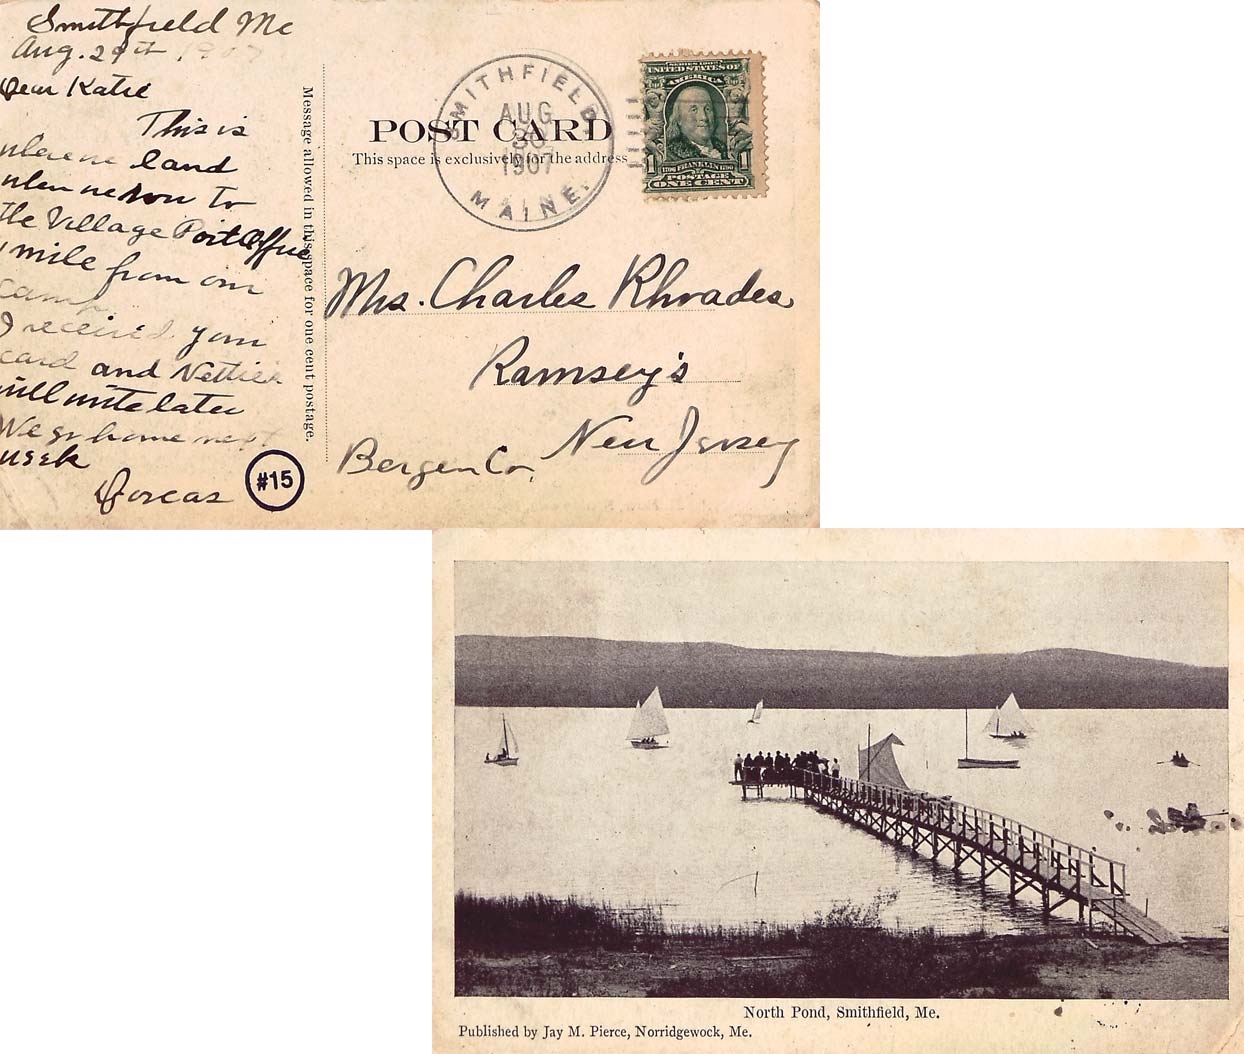 Smithfield Me
Aug. 29th, 1907
Dear Katie
This is
where we land
when we row to
the Village Post Office
1 mile from our
camp
I received your
card and Netties
will write later
We go home next
week
Dorcas
#15
Message allowed in this space for one cent postage.
SMITHFIELD
AUG
30
1907
MAINE.
POST CARD
This space is exclusively for the address
SERIES 1902
UNITED STATES OF
AMERICA
1706 FRANKLIN 1790
1 1
POSTAGE
ONE CENT
Mrs. Charles Rhoades,
Ramsey's
New Jersey
Bergen Co,
North Pond, Smithfield, Me.
Published by Jay M. Pierce, Norridgewock, Me.